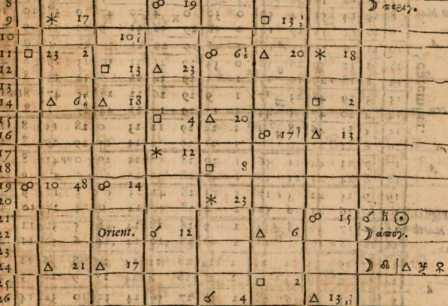 8 ☍ 19 ☽
9 ⚹ 17 □ 13½
10
11 □ 23 2 ☍ △ 20 ⚹ 18
12 □ 13 △ 23
13
14 △ △ 18 □ 2
15 □ 4 △ 20
16 ☍ △ 13
17 ⚹ 12
18 □ 8
19 ☍ 10 48 ☍ 14
20 ⚹ 23
21 ☍ 15 ☌ ♄ ☉
22 Orient. ☌ 12 △ 6 ☽ ἀπογ.
23
24 △ 21 △ 17 ☽ ☊ △ ♀
25 □ 2
26 ☌ 4 △